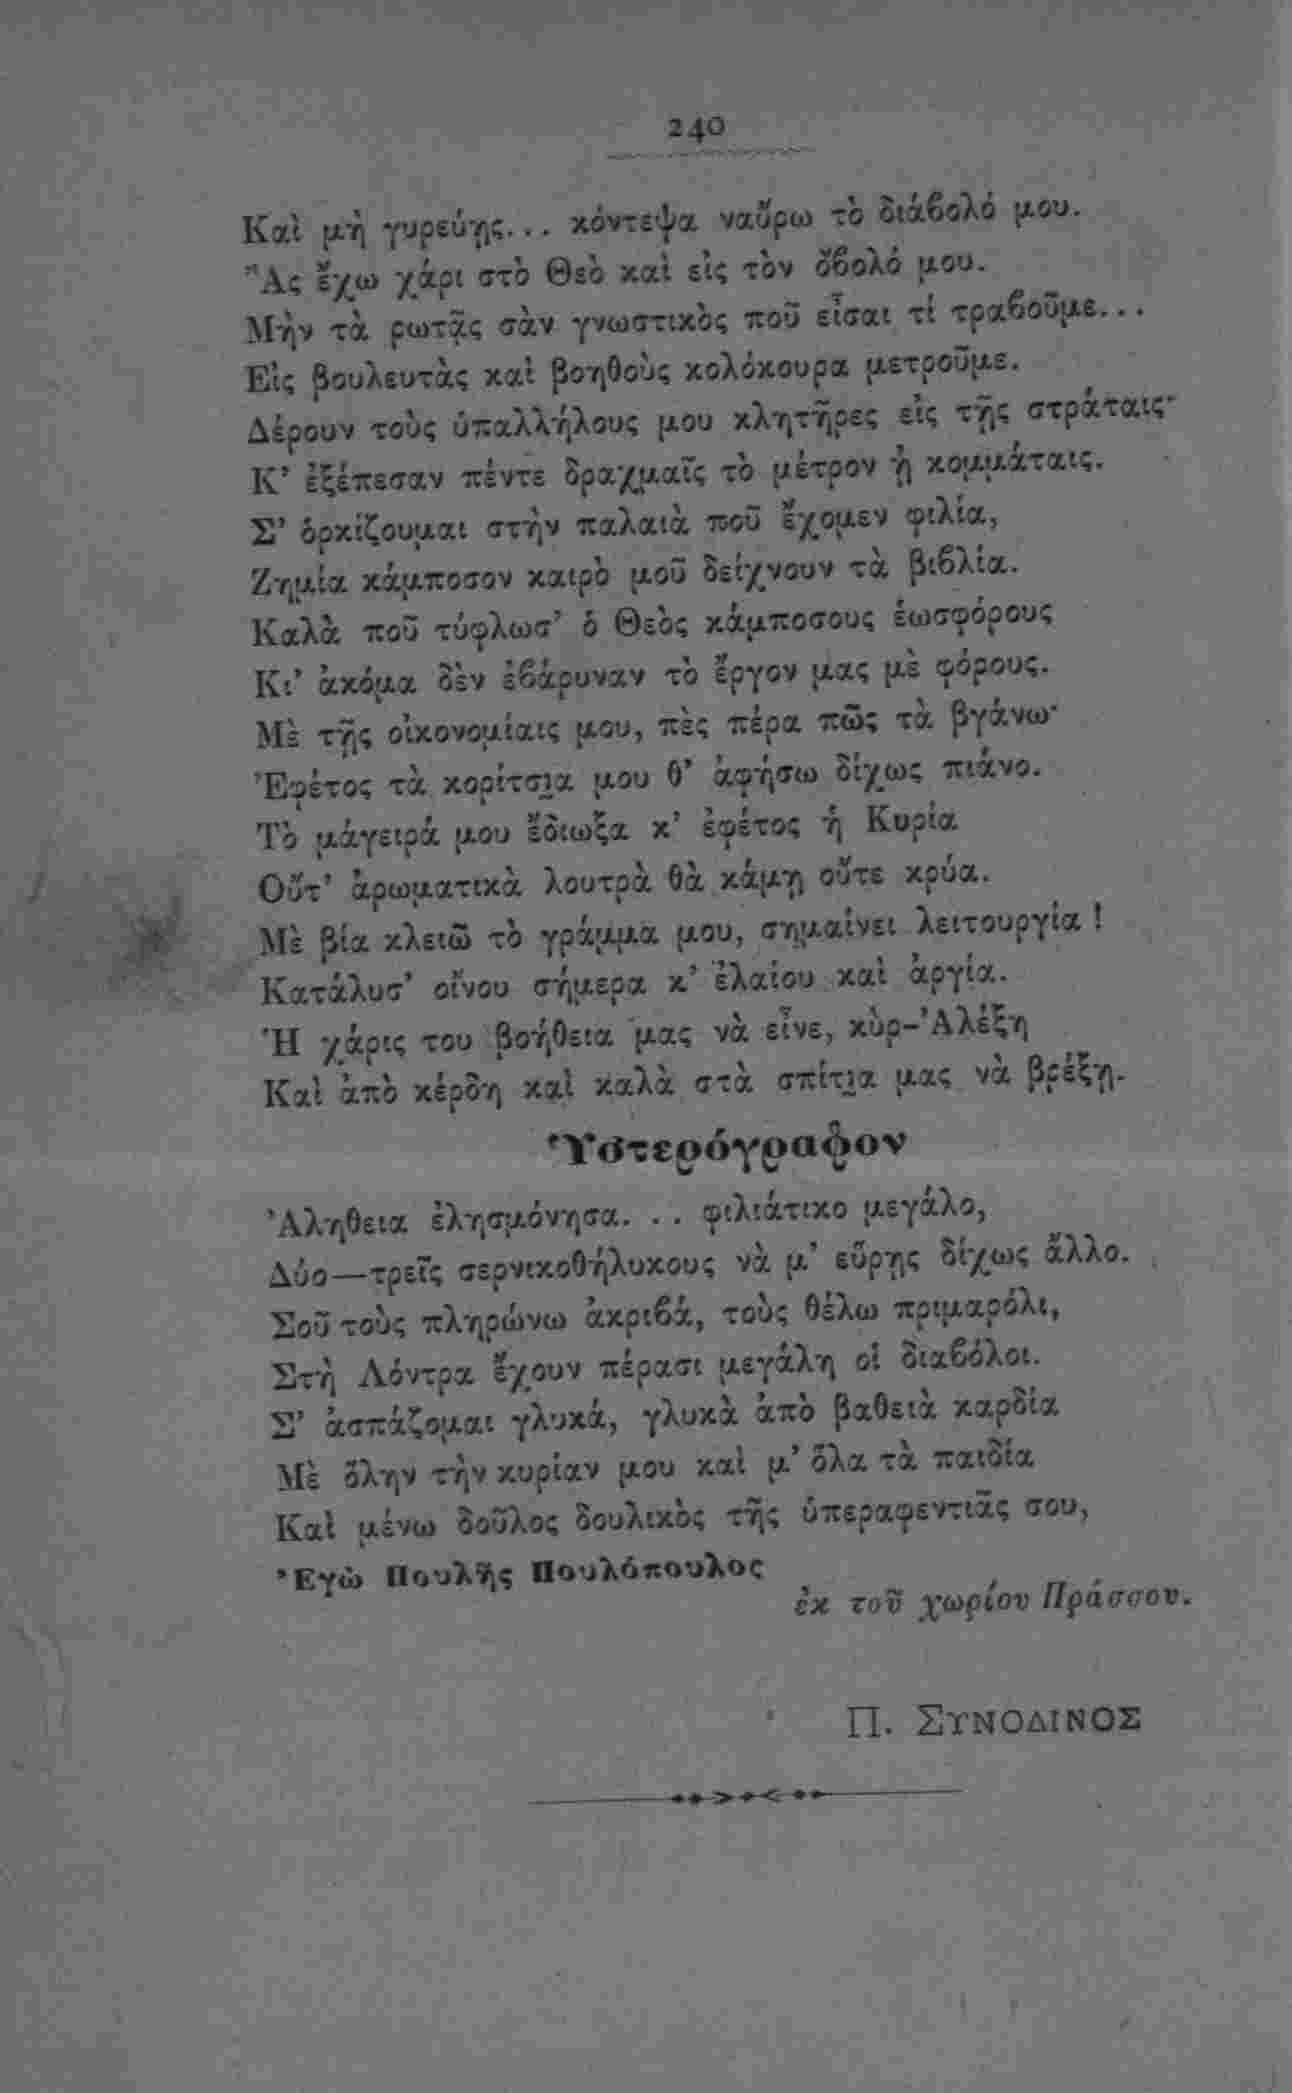 240
Καὶ μὴ γυρεύῃς... κόντεψα ναὕρω τὸ διάβολό μου.
Ἂς ἔχω χάρι στὸ Θεὸ καὶ εἰς τὸν ὄβολό μου.
Μὴν τὰ ρωτᾷς σὰν γνωστικὸς ποῦ εἶσαι τί τραβοῦμε...
Εἰς βουλευτὰς καὶ βοηθοὺς κολόκουρα μετροῦμε.
Δέρουν τοὺς ὑπαλλήλους μου κλητῆρες εἰς τῇς στράταις·
Κ’ ἐξέπεσαν πέντε δραχμαῖς τὸ μέτρον ᾑ κομμάταις.
Σ’ ὁρκίζουμαι στὴν παλαιὰ ποῦ ἔχομεν φιλία,
Ζημία κάμποσον καιρὸ μοῦ δείχνουν τὰ βιβλία.
Καλὰ ποῦ τύφλωσ’ ὁ Θεὸς κάμποσους ἑωσφόρους
Κι’ ἀκόμα δὲν ἐβάρυναν τὸ ἔργον μας μὲ φόρους.
Μὲ τῇς οἰκονομίαις μου, πὲς πέρα πῶς τὰ βγάνω·
Ἐφέτος τὰ κορίτσια μου θ’ ἀφήσω δίχως πιάνο.
Τὸ μάγειρά μου ἔδιωξα κ’ ἐφέτος ἡ Κυρία
Οὔτ’ ἀρωματικὰ λουτρὰ θὰ κάμῃ οὔτε κρύα.
Μὲ βία κλειῶ τὸ γράμμα μου, σημαίνει λειτουργία !
Κατάλυσ’ οἴνου σήμερα κ’ ἐλαίου καὶ ἀργία.
Ἡ χάρις του βοήθεια μας νὰ εἶνε, κὺρ-Ἀλέξη
Καὶ ἀπὸ κέρδη καὶ καλὰ στὰ σπίτια μας νὰ βρέξῃ.
Ὑστερόγραφον
Ἀλήθεια ἐλησμόνησα. .. φιλιάτικο μεγάλο,
Δύο—τρεῖς σερνικοθήλυκους νὰ μ’ εὕρῃς δίχως ἄλλο.
Σοῦ τοὺς πληρώνω ἀκριβά, τοὺς θέλω πριμαρόλι,
Στὴ Λόντρα ἔχουν πέρασι μεγάλη οἱ διαβόλοι.
Σ’ ἀσπάζομαι γλυκά, γλυκὰ ἀπὸ βαθειὰ καρδία
Μὲ ὅλην τὴν κυρίαν μου καὶ μ’ ὅλα τὰ παιδία
Καὶ μένω δοῦλος δουλικὸς τῆς ὑπεραφεντιᾶς σου,
Ἐγὼ Πουλῆς Πουλόπουλος
ἐκ τοῦ χωρίου Πράσσου.
Π. ΣΥΝΟΔΙΝΟΣ